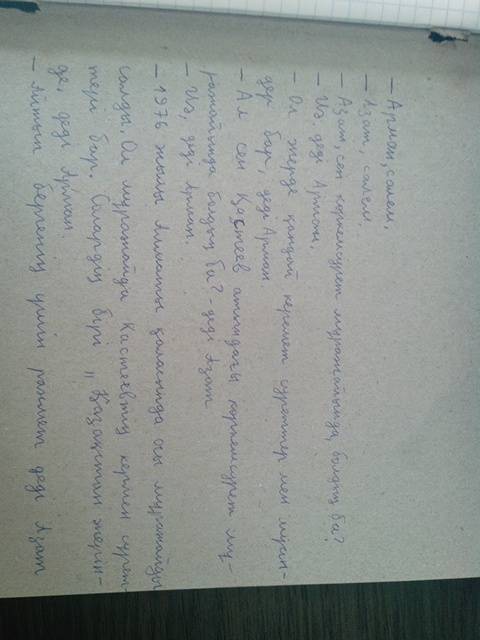 — Арман, сәлем,
— Азат, сәлем.
— Азат, сен көркемсурет мұражайында болдың ба?
— Иә, деді Арман.
— Ол жерде қандай керемет суреттер мен мұран-
дер бар, деді Арман
— Ал сен Қастеев атындағы көркемсурет мұ-
ражайында болдың ба? - деді Азат
— Иә, деді Арман.
— 1976 жылы Алматы қаласында осы мұражайды
салды. Ол мұражайда Кастеевтың көрмен сурет-
тері бар. Солардың бірі „Қазақтың жерін-
де, деді Арман.
— Айтып бергенің үшін рахмет деді Азат